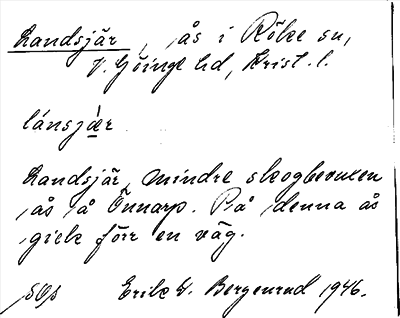 Landsjär, ås i Röke sn,
V. Göinge hd, Krist. l.
lánsjær
Landsjär, mindre skogbevuxen
ås å Önnarp. På denna ås
gick förr en väg.
Erik W. Bergenrud 1946.